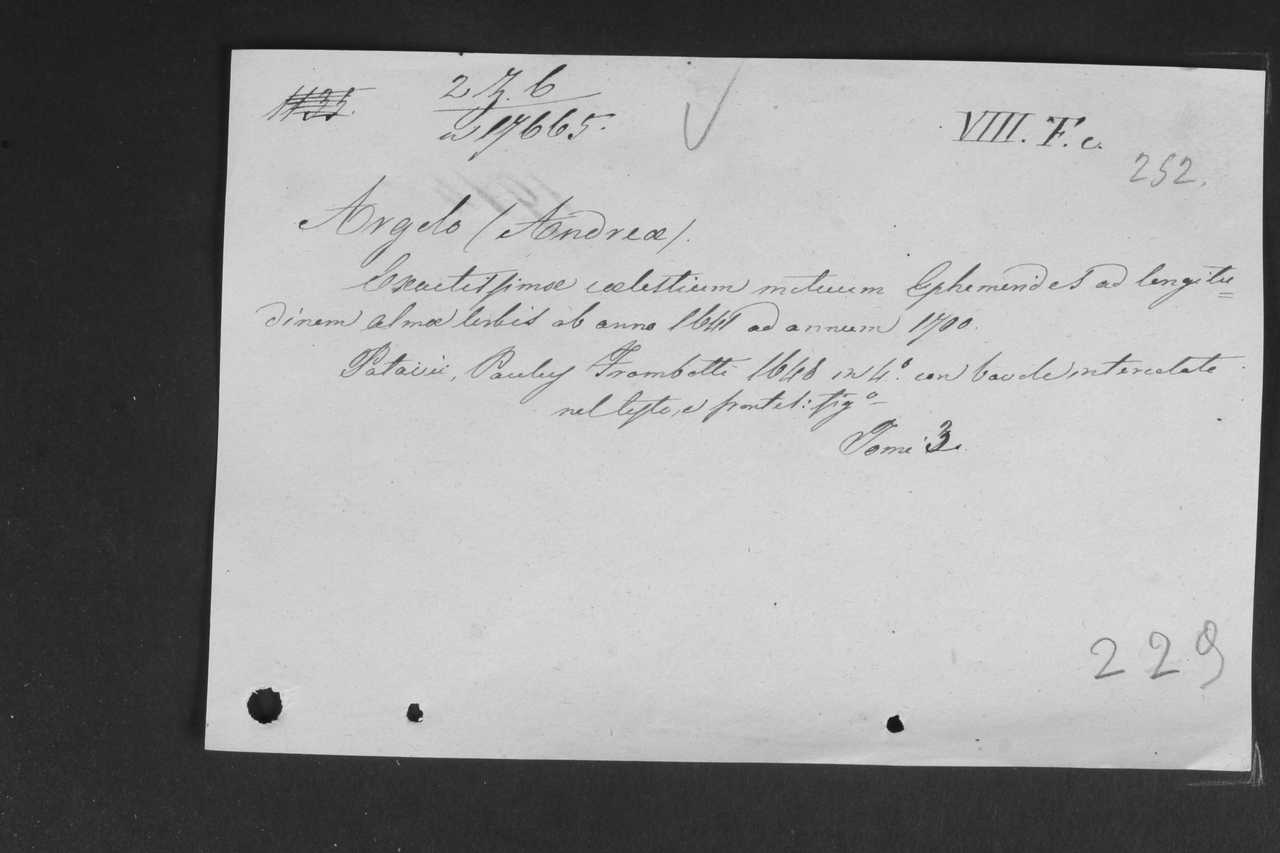 1135.
2 Z. 6
a 17665.
VIII. F. c.
252.
Argelo (Andreæ).
Exactissimæ cœlestium motuum Ephemerides ad longitu=
dinem almæ Urbis ab anno 1641 ad annum 1700.
Patavii, Pauly Frambotti 1648 in 4.º con tavole intercalate
nel testo, e frontes: fig.º
Tomi 3.
229